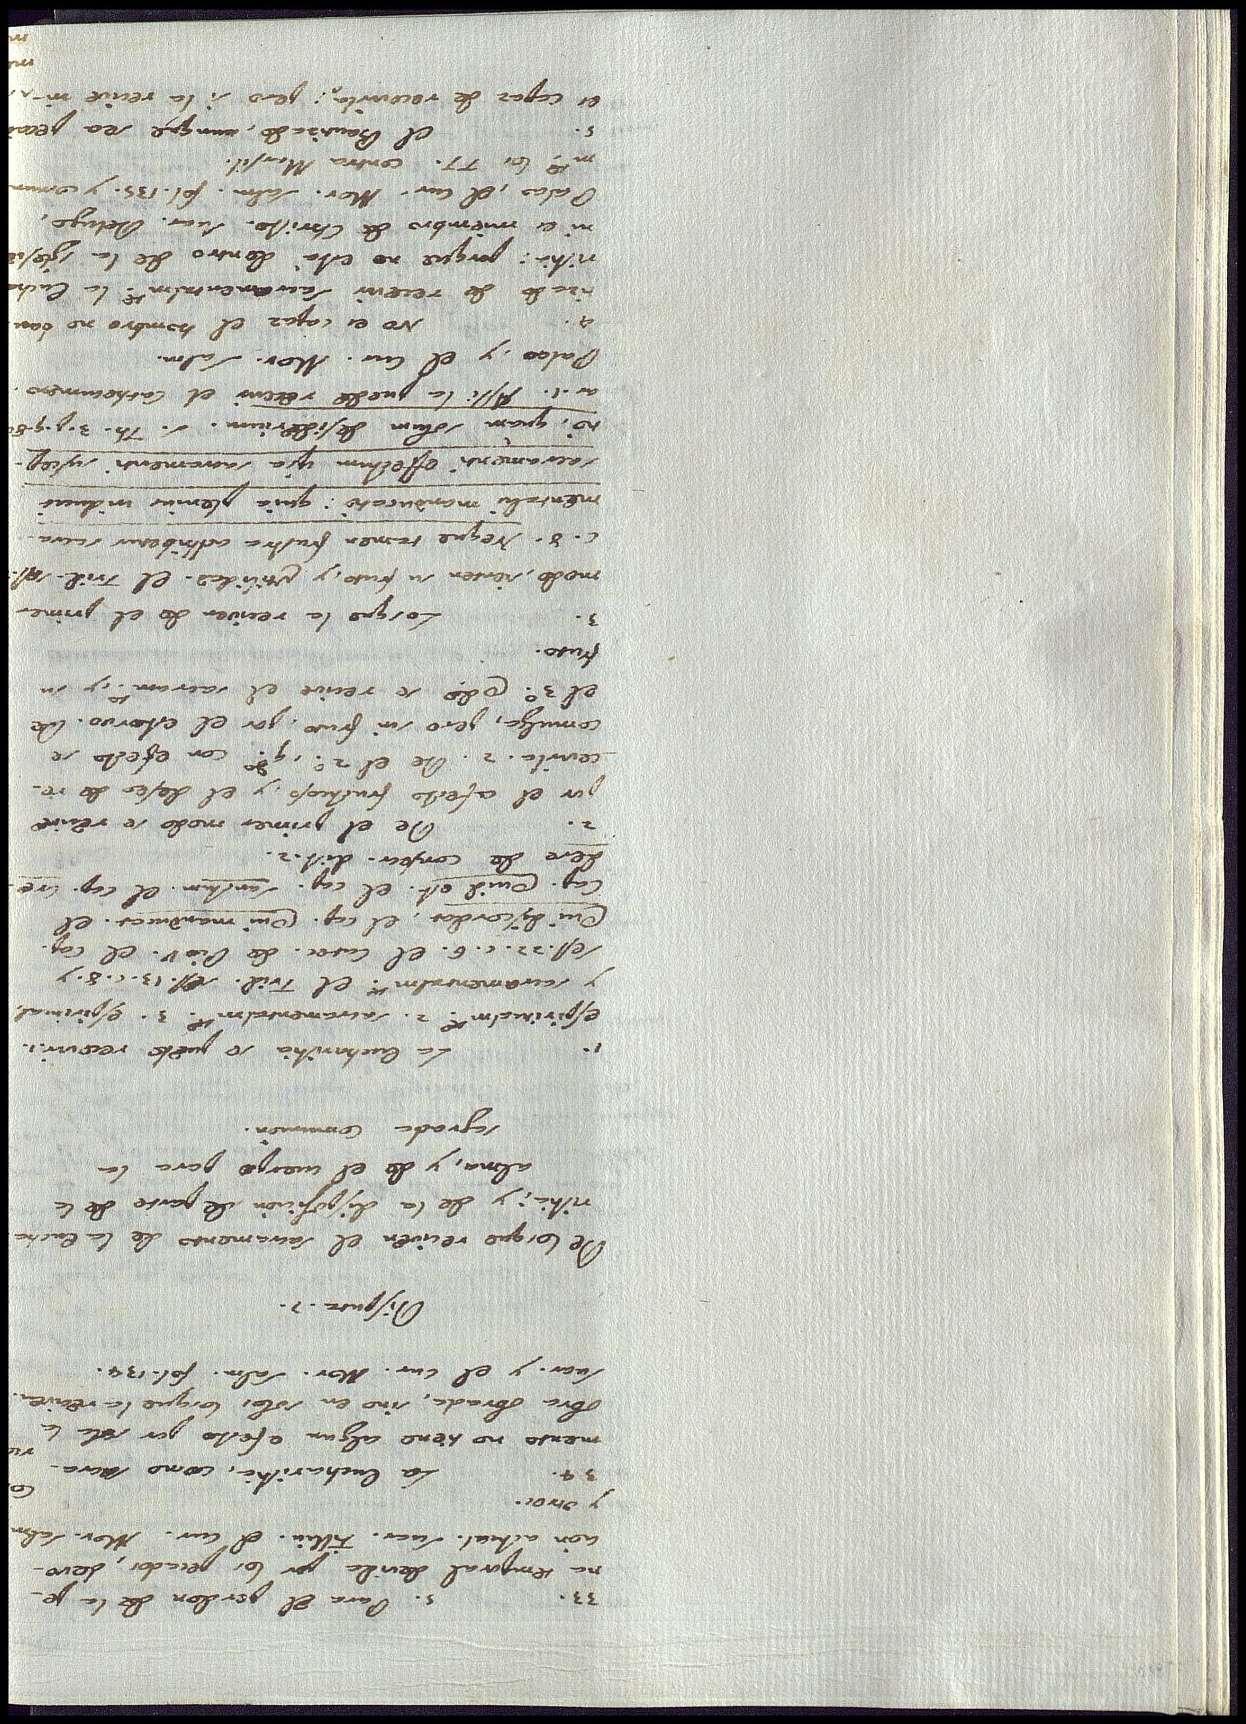 33. 5. Para el perdon de la pe-
na temporal devida por los pecados, devo-
cion actual. Suar. Filliu. el Cur. Mor. Salm
y otros.
34. La Eucharistia, como sacra-
mento no tiene algun efecto por sola la
obra obrada, sino en solos losque la reciven.
Suar. y el Cur. Mor. Salm. fol. 134.
Disputa. 2.
De losque reciven el sacramento de la Eucha
ristia; y de la disposicion de parte de la
alma, y de el cuerpo para la
sagrada comunion.
1. La Eucharistia se puede recevir. 1.
espiritualmte. 2. sacramentalmte. 3. espiritual,
y sacramentalmte. el Trid. ses. 13. c. 8. y
ses. 22. c. 6. el Catec. de Pio V. el cap.
Qui discordat, el cap. Qui manducat. el
cap. Quid est. el cap. Sanctum. el cap. Cre-
dere de consecr. dist. 2.
2. De el primer modo se recive
por el afecto fructuoso, y el deseo de re-
cevirla. 2. De el 2º, qdo. con efecto se
comulga, pero sin fruto, por el estorvo. De
el 3º. qdo. se recive el sacramto. y su
fruto.
3. Losque la reciven de el primer
modo, sienten su fruto, y utilidad. el Trid. ses.
c. 8. Neque tamen frustra adhibetur sacra-
mentalis manducatio: quia plenius inducit
sacramenti effectum ipsa sacramenti suscep-
tio, quam solum desiderium. S. Th. 3. p. q. 80
ar. 1. Assi la puede recevir el cathecumeno.
Palao, y el Cur. Mor. Salm.
4. No es capaz el hombre no bau
tizado de recevir sacramentalmte. la Eucha
ristia: porque no està dentro de la Iglesia
ni es miembro de Christo. Suar. Deluga,
Palao, el Cur. Mor. Salm. fol. 135. y comun
mte. los TT. contra Marsil.
5. el Bautizado, aunque sea peca
es capaz de recevirla; pero si la recive in-